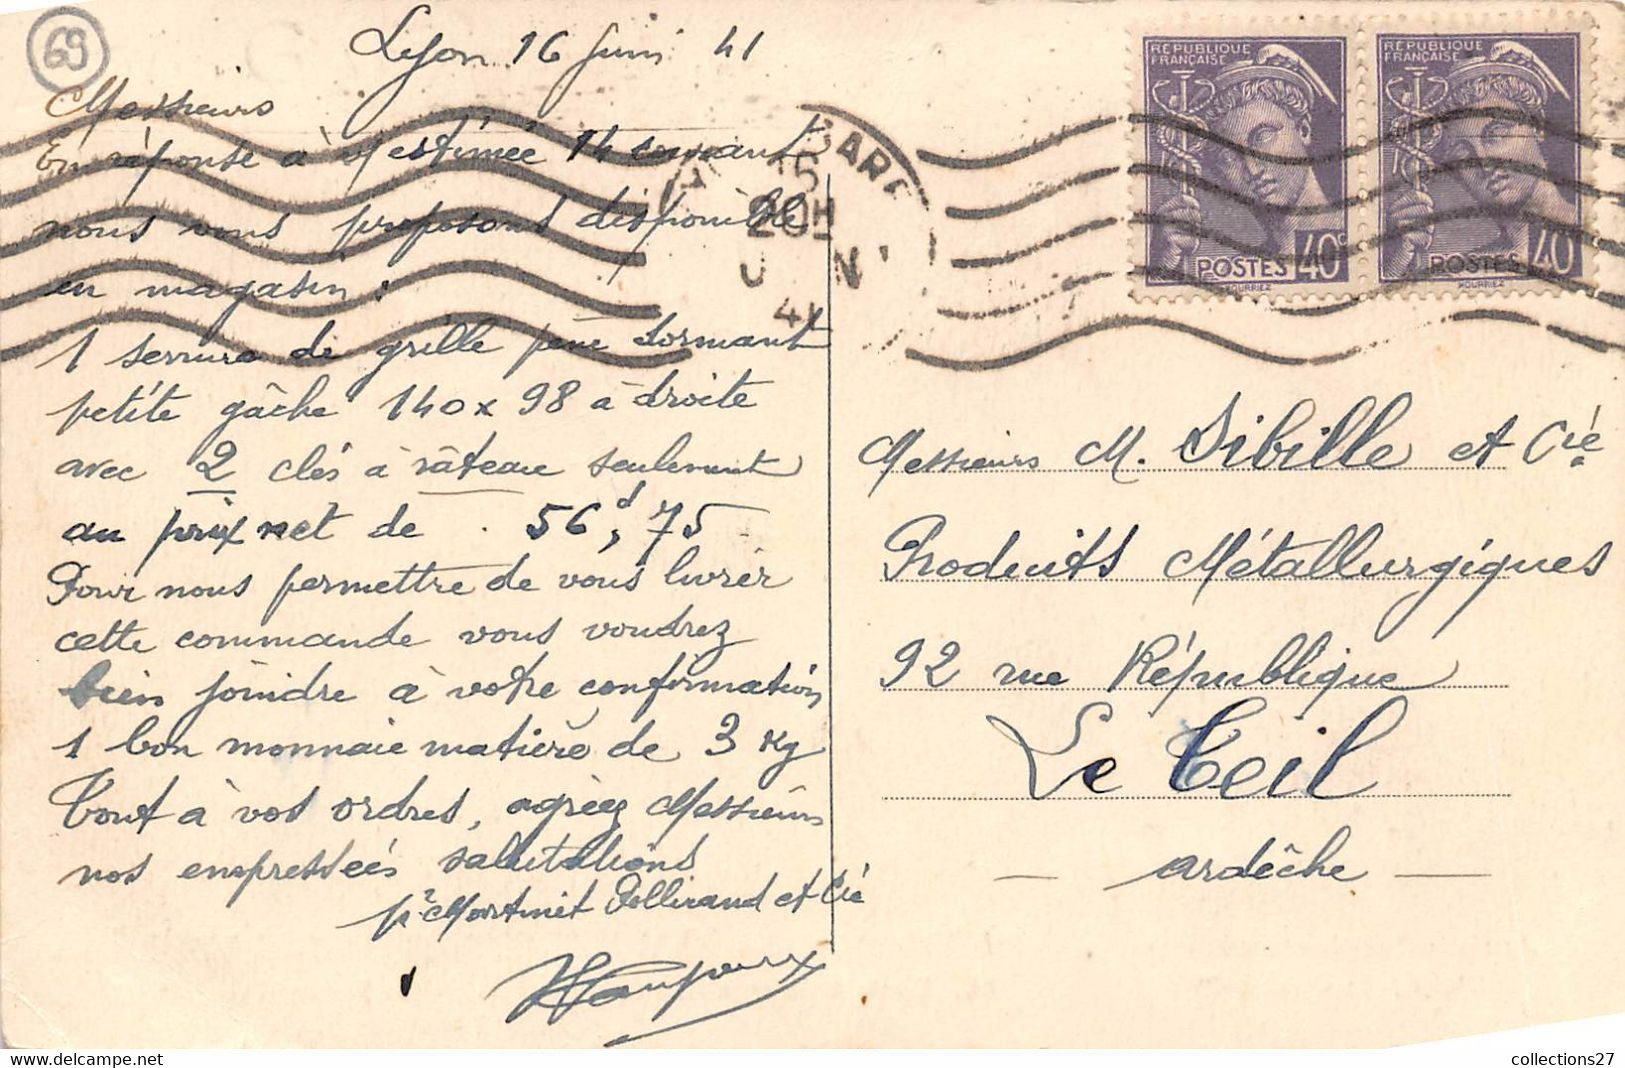 69
Lyon 16 Juin 41
Messieurs
En réponse à v/ estimée 14 courant
nous vous proposons disponible
en magasin :
1 serrure de grille pène dormant
petite gâche 140 x 98 à droite
avec 2 clés à râteau seulement
au prix net de . 56, 75
Pour nous permettre de vous livrer
cette commande vous voudrez
bien joindre à votre confirmation
1 bon monnaie matière de 3 Kg
Tout à vos ordres, agréez Messieurs
nos empressées salutations
pr Mortinet Pollirand et Cie
GARE
20H
41
REPUBLIQUE
FRANÇAISE
POSTES 40c
HOURRIEZ
REPUBLIQUE
FRANÇAISE
POSTES 40
HOURRIEZ
Messieurs M. Sibille et Cie
Produits Métallurgiques
92 rue République
Le Teil
— ardêche —
collections27